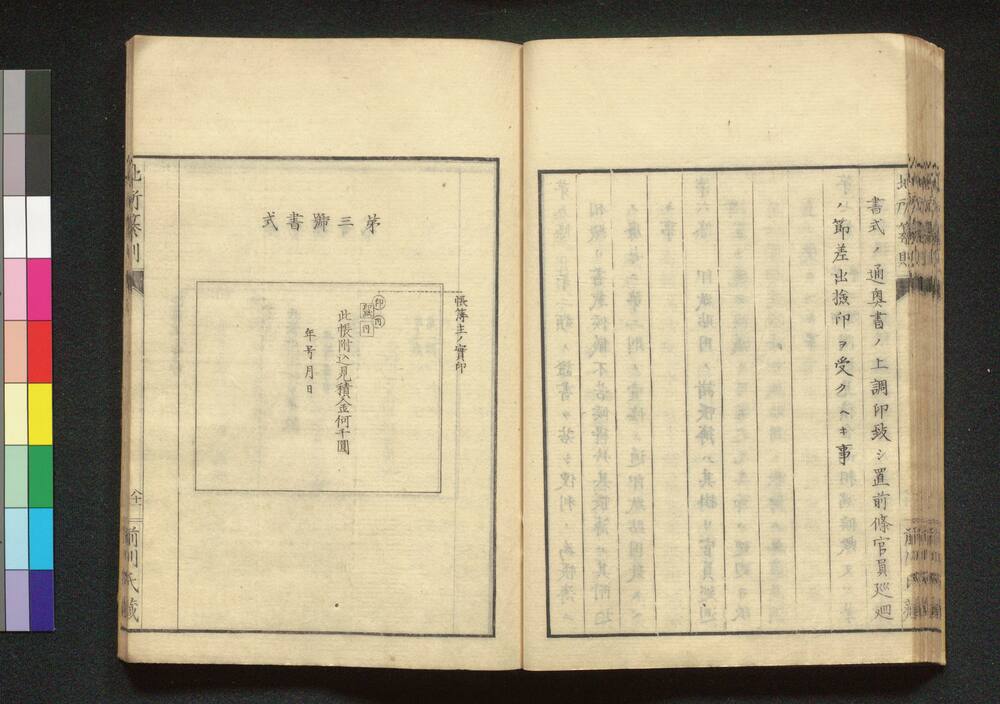 書式ノ通奥書ノ上調印致シ置前條官員巡廻
ノ節差出撿印ヲ受クヘキ事
地所篆則
第三號書式
帳簿主ノ實印
印
此帳附込見積金何千圓
年号月日
地所篆則
前川氏藏